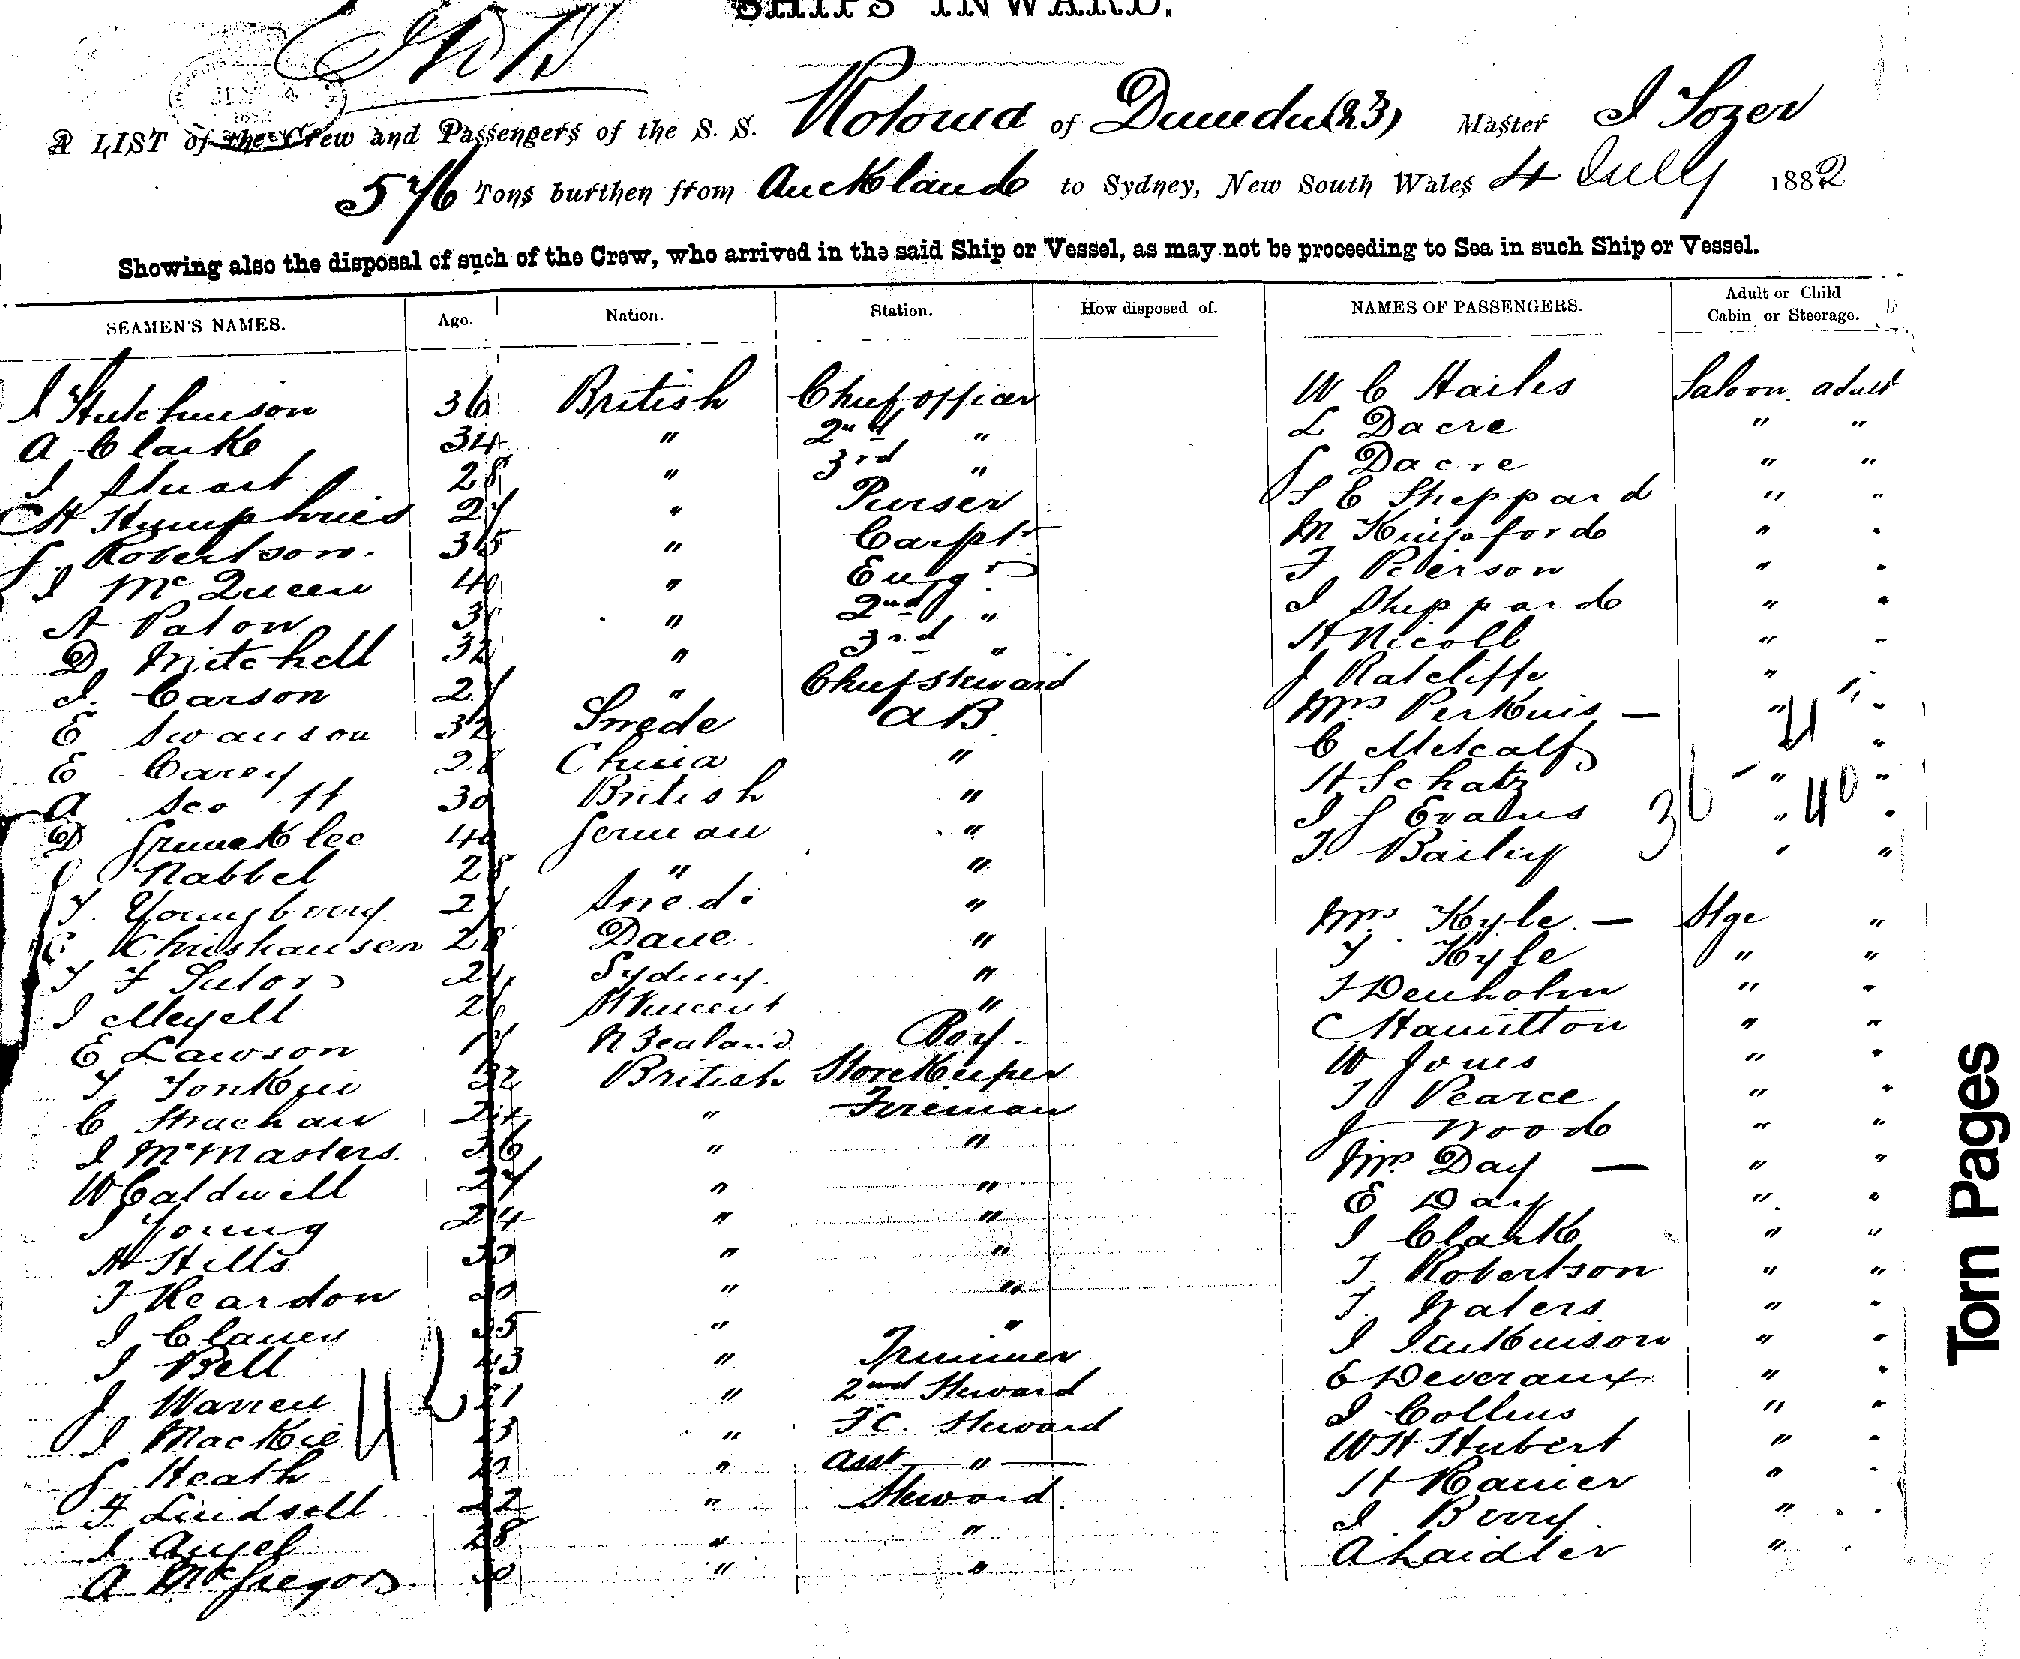 SHIPS INWARD.
A LIST of the Crew and Passengers of the S. S. Rotorua of Dunedin (23) Master J Sozer
576 Tons burthen from Auckland to Sydney, New South Wales 4 July 1882
Showing also the disposal of such of the Crew, who arrived in the said Ship or Vessel, as may not be proceeding to Sea in such Ship or Vessel.
SEAMEN'S NAMES. Age. Nation. Station. How disposed of. NAMES OF PASSENGERS. Adult or Child Cabin or Steerage.
J Hutchinson 36 British Chief officer W C Hailes Saloon adult
A Clarke 34 " 2nd " L Dacre " "
J Stuart 28 " 3rd " G Dacre " "
C H Humphries 27 " Purser S E Sheppard " "
G Robertson 35 " Carptr M Kingsford " "
J McQueen 40 " Engr F Peirson " "
A Paton 3 " 2nd " J Sheppard " "
D Mitchell 32 " 3rd " H Nicoll " "
J. Carson 27 " Chief Steward J Ratcliffe "
E Swanson 32 Swede AB Mrs Perkins — " "
E Carey 28 China " C Metcalf "
A Scott 30 British " H Schatz " "
D Grueneklee 40 German " J G Evans " "
G Nabbel 28 " " T. Bailey " "
T. Youngberry 27 Swede " Mrs Kyle — Stge "
C Christiansen 28 Dane " T Kyle " "
T F Sutor 2 Sydney " J Denholm " "
J Meyell 26 St Vincent " C Hamilton " "
E Lawson 17 N Zealand Boy W Jones " "
T Tonkin 32 British Storekeeper T Pearce " "
C Strachan 24 " Fireman J Wood " "
J McMasters 36 " " Mrs Day — " "
W Caldwell 27 " " E Day " "
J Young 24 " " J Clark " "
A Hills 30 " " T Robertson " "
T Reardon 30 " " T. Waters " "
J Clancy 35 " " J Jenkinson " "
J Bell 43 " Trimmer E Deveraux " "
J Warren 21 " 2nd Steward J Collins " "
J Mackie 25 " F.C. Steward W H Hubert " "
G Heath " Asst " H Ranier "
F Lindsell 22 " Steward J Berry " "
J Angel 28 " " A Laidler "
A McGregor 30 " "
36
40
42
Torn Pages